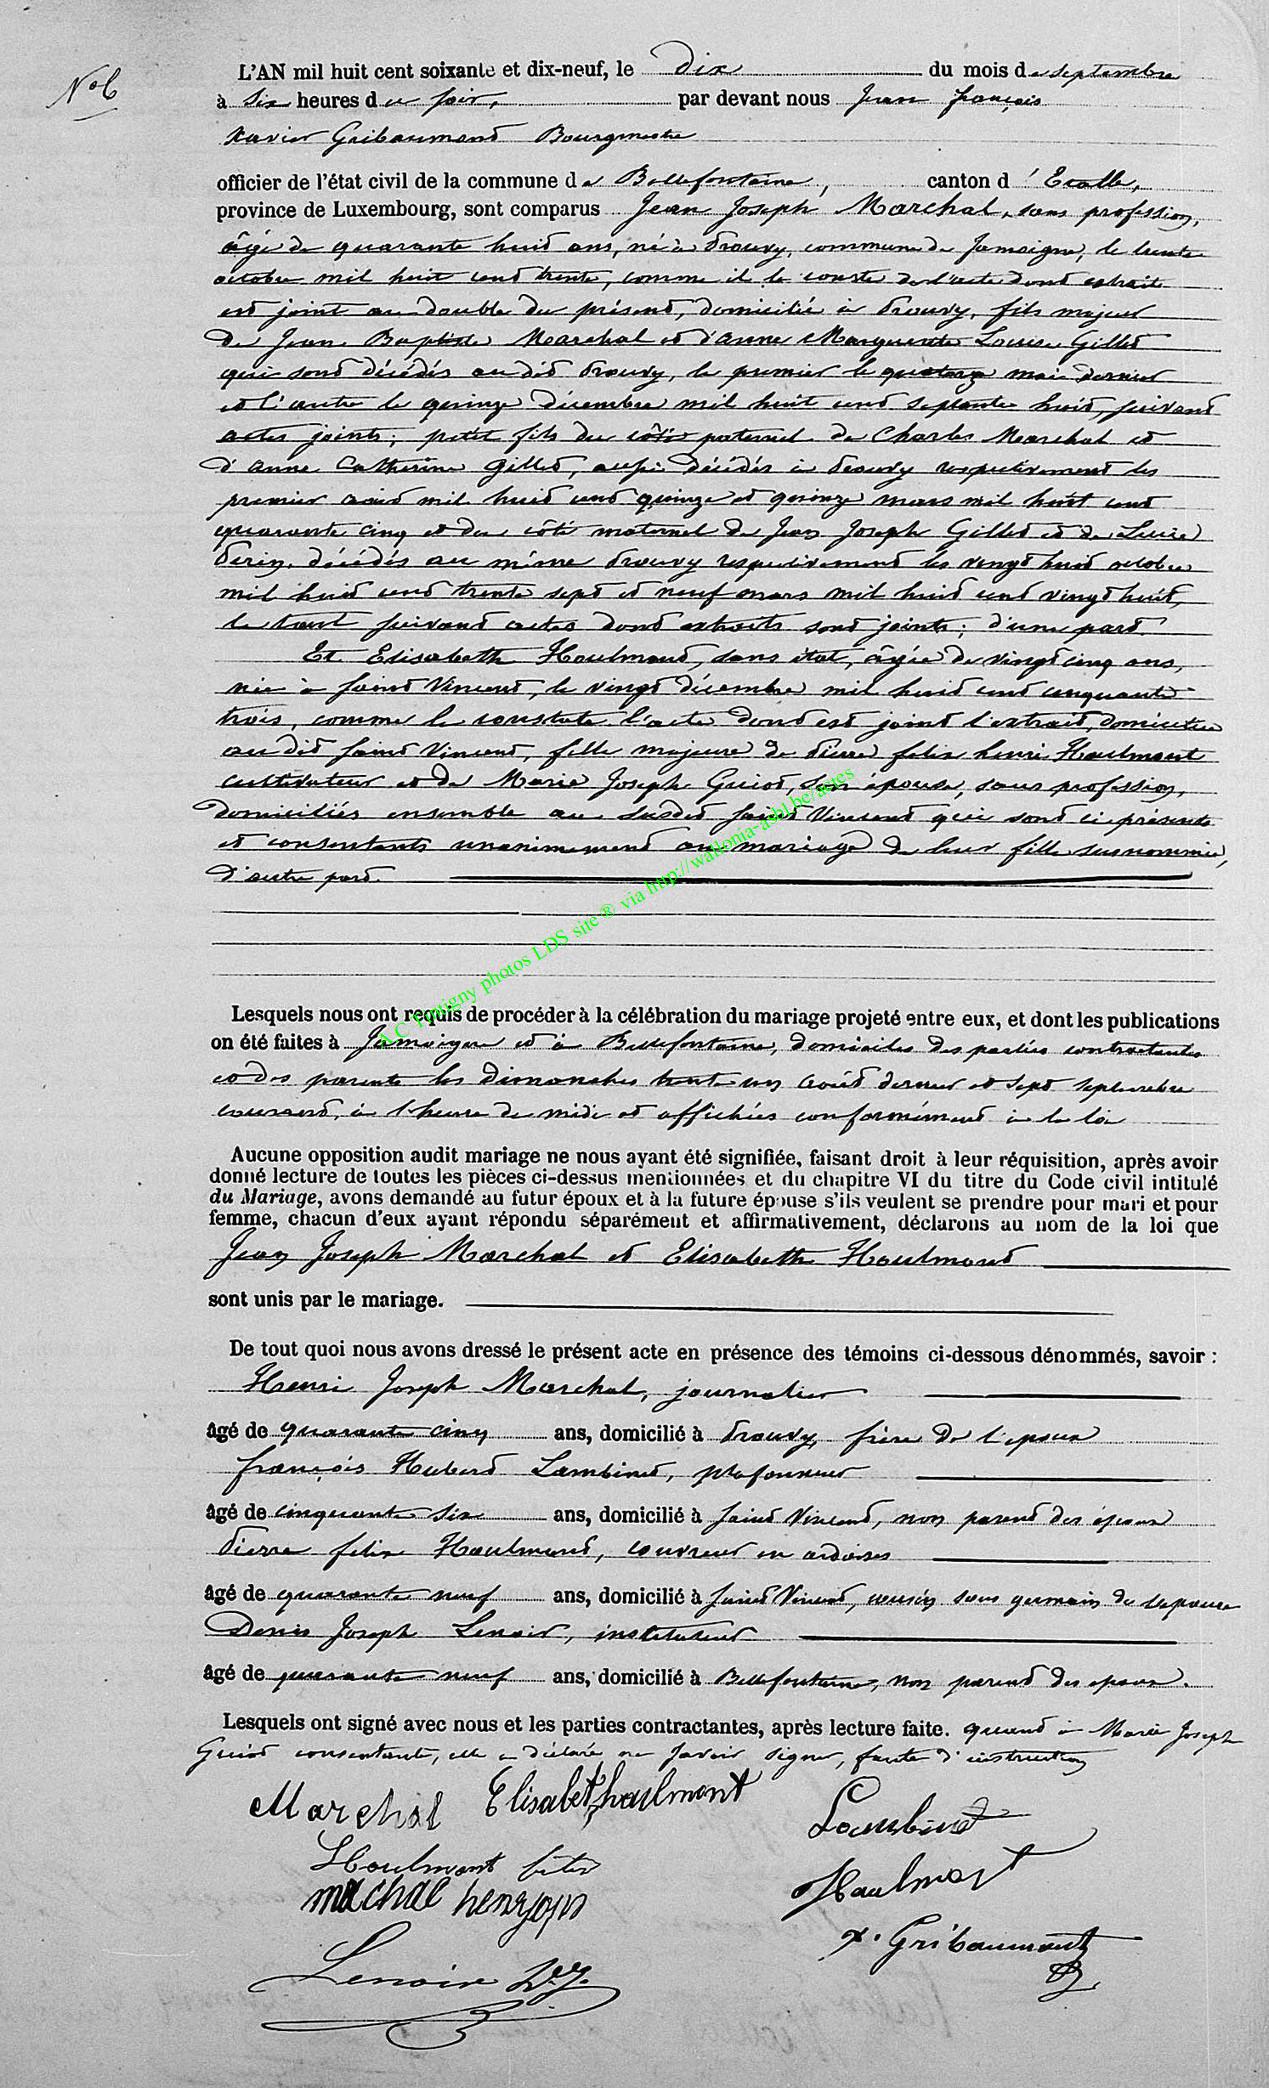 N° 6
L'AN mil huit cent soixante et dix-neuf, le dix du mois de septembre
à six heures du soir, par devant nous Jean françois
Xavier Gribaumont Bourgmestre
officier de l'état civil de la commune de Bellefontaine, canton d'Etalle,
province de Luxembourg, sont comparus Jean Joseph Marchal, sans profession,
âgé de quarante huit ans, né à Prouvy, commune de Jamoigne, le trente
octobre mil huit cent trente, comme il le conste de l'acte dont extrait
est joint au double du présent, domicilié à Prouvy, fils majeur
de Jean Baptiste Marchal et d'anne Marguerite Louise Gillet
qui sont décédés au dit Prouvy, le premier le quatorze mai dernier
et l'autre le quinze décembre mil huit cent septante huit, suivant
actes joints; petit fils du côté paternel de Charles Marchal et
d'anne Catherine Gillet, aussi décédés à Prouvy respectivement les
premier août mil huit cent quinze et quinze mars mil huit cent
quarante cinq et du côté maternel de Jean Joseph Gillet et de Lucie
Perin, décédés au même Prouvy respectivement les vingt huit octobre
mil huit cent trente sept et neuf mars mil huit cent vingt huit,
le tout suivant actes dont extraits sont joints; d'une part.
Et Elisabeth Haulmont, sans état, âgée de vingt cinq ans,
née à Saint Vincent, le vingt décembre mil huit cent cinquante
trois, comme le constate l'acte dont est joint l'extrait, domiciliée
au dit Saint Vincent, fille majeure de Pierre felix henri Haulmont
cultivateur et de Marie Joseph Guiot, son épouse, sans profession,
domiciliés ensemble au susdit Saint Vincent qui sont ci présents
et consentants unanimement au mariage de leur fille susnommée,
d'autre part.
A.C Tintigny photos LDS site ® via http://wallonia-asbl.be/actes
Lesquels nous ont requis de procéder à la célébration du mariage projeté entre eux, et dont les publications
on été faites à Jamoigne et à Bellefontaine, domiciles des parties contractantes
et des parents les dimanches trente un août dernier et sept septembre
courant, à l'heure de midi et affichées conformément à la loi
Aucune opposition audit mariage ne nous ayant été signifiée, faisant droit à leur réquisition, après avoir
donné lecture de toutes les pièces ci-dessus mentionnées et du chapitre VI du titre du Code civil intitulé
du Mariage, avons demandé au futur époux et à la future épouse s'ils veulent se prendre pour mari et pour
femme, chacun d'eux ayant répondu séparément et affirmativement, déclarons au nom de la loi que
Jean Joseph Marchal et Elisabeth Haulmont
sont unis par le mariage.
De tout quoi nous avons dressé le présent acte en présence des témoins ci-dessous dénommés, savoir :
Henri Joseph Marchal, journalier
âgé de quarante cinq ans, domicilié à Prouvy, frère de l'époux
françois Hubert Lambinet, plafonneur
âgé de cinquante six ans, domicilié à Saint Vincent, non parent des époux
Pierre felix Haulmont, couvreur en ardoises
âgé de quarante neuf ans, domicilié à Saint Vincent, cousin sous germain de l'épouse
Denis Joseph Lenoir, instituteur
âgé de quarante neuf ans, domicilié à Bellefontaine, non parent des époux.
Lesquels ont signé avec nous et les parties contractantes, après lecture faite. quant à Marie Joseph
Guiot consentante, elle a déclaré ne savoir signer, faute d'instruction
Marchal Elisabeth haulmont
Lambinet
Haulmont felix
machal henry
Haulmont
X. Gribaumont
Lenoir D.J.